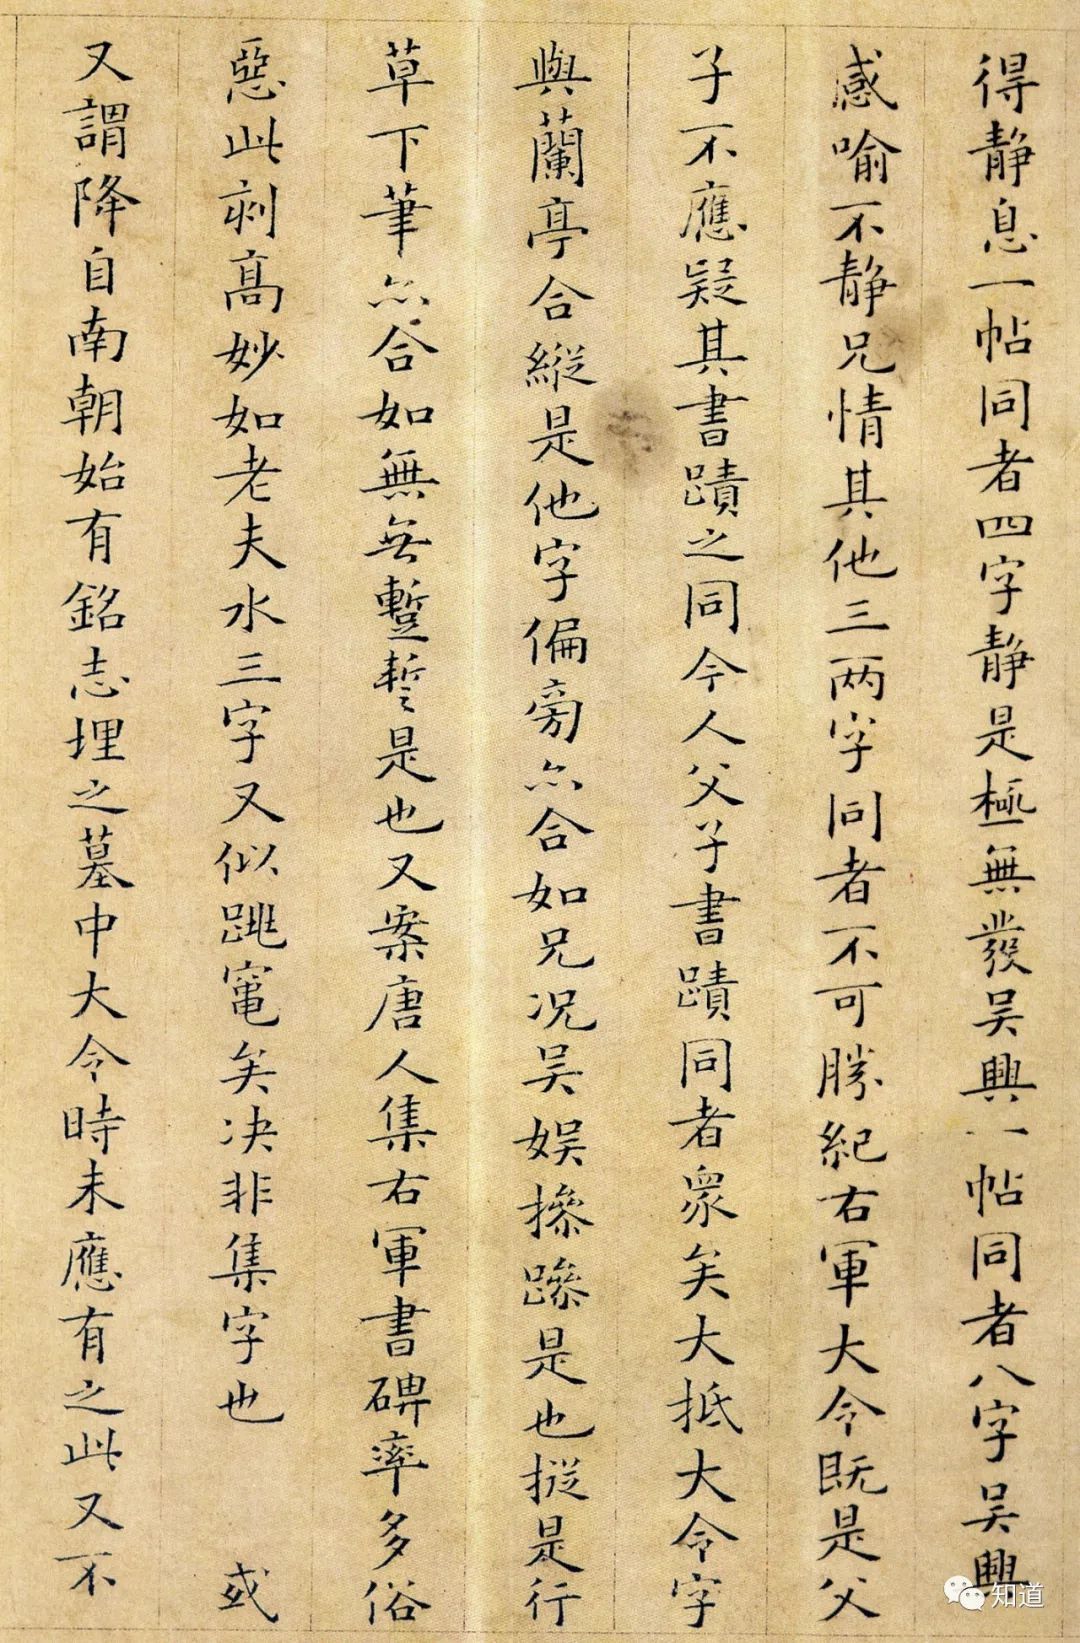 得静息一帖同者四字静是極無發吴興一帖同者八字吴興
感喻不静兄情其他三两字同者不可勝紀右軍大令既是父
子不應疑其書蹟之同今人父子書蹟同者衆矣大抵大令字
與蘭亭合縱是他字偏旁亦合如兄况吴娱摻蹂是也摐是行
草下筆亦合如無無蹔蹔是也又案唐人集右軍書碑率多俗
惡此刻髙妙如老夫水三字又似跳竃矣决非集字也 或
又謂降自南朝始有銘志埋之墓中大令時未應有之此又不
知道